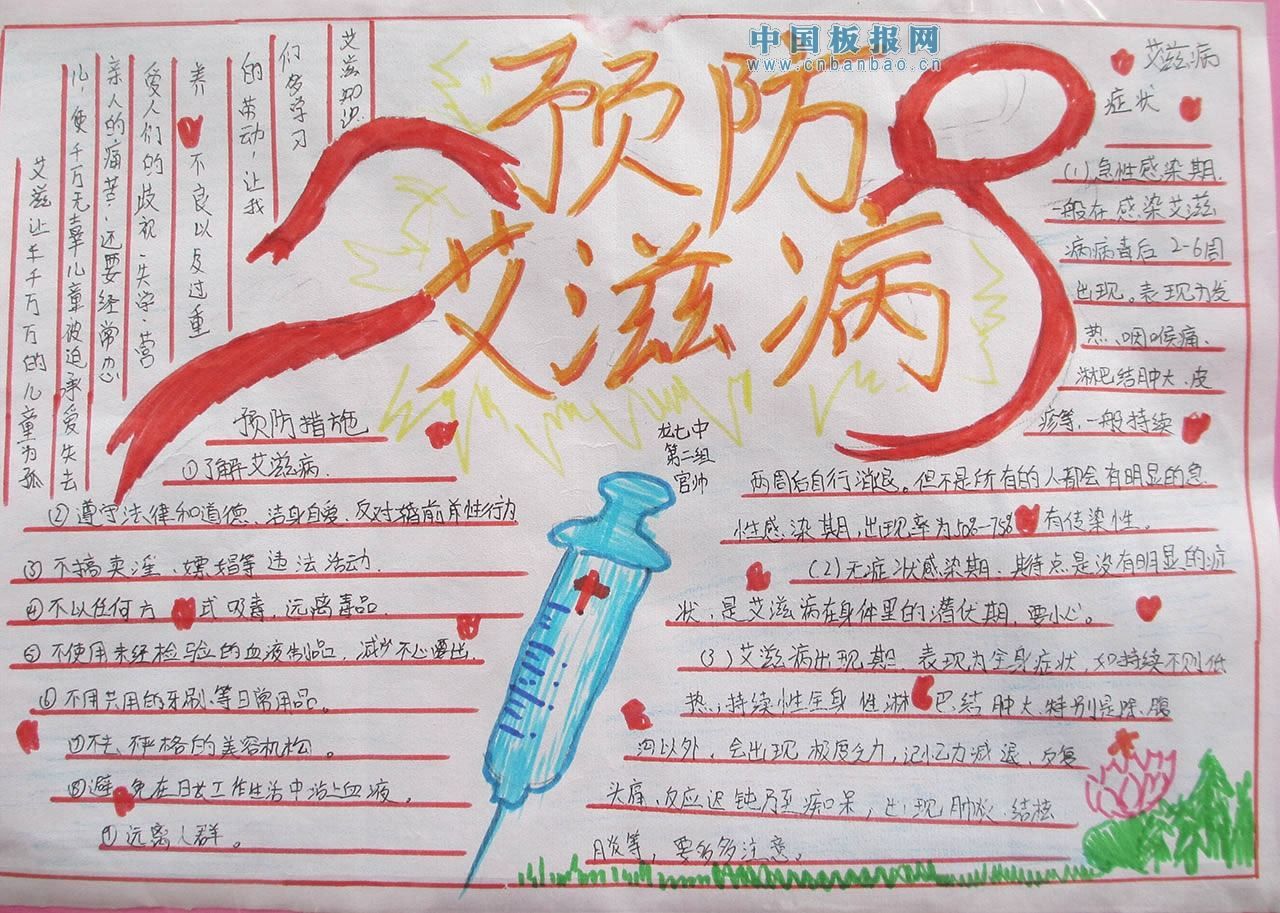 中国板报网
www.cnbanbao.cn
预防
艾滋病
艾滋让千千万万的儿童为孤
儿，使千万无辜儿童被迫承受失去
亲人的痛苦，还要经常忍
受人们的歧视、失学、营
养不良以及过重
的劳动，让我
们多学习
艾滋知识
预防措施
①了解艾滋病.
②遵守法律和道德、洁身自爱、反对婚前性行为
③不搞卖淫、嫖娼等违法活动.
④不以任何方式吸毒，远离毒品.
⑤不使用未经检验的血液制品，减少不必要
⑥不用共用的牙刷等日常用品。
⑦不去严格的美容机
⑧避免在日工作生活中沾上血液。
⑨远离人群。
第二组
艾滋病
症状
(1)急性感染期.
一般在感染艾滋
病病毒后2-6周
出现。表现为发
热、咽喉痛、
淋巴结肿大、皮
疹等，一般持续
两周后自行消退。但不是所有的人都会有明显的急
性感染期，出现率为50%-75%有传染性。
(2)无症状感染期.其特点是没有明显的症
状，是艾滋病在身体里的潜伏期，要小心。
(3)艾滋病出现期.表现为全身症状，如持续不则低
热；持续性全身性淋巴结肿大.特别是除腹
沟以外，会出现极度乏力，记忆力减退，反复
头痛、反应迟钝乃至痴呆，出现肺炎、结核
肠炎等，要多多注意。